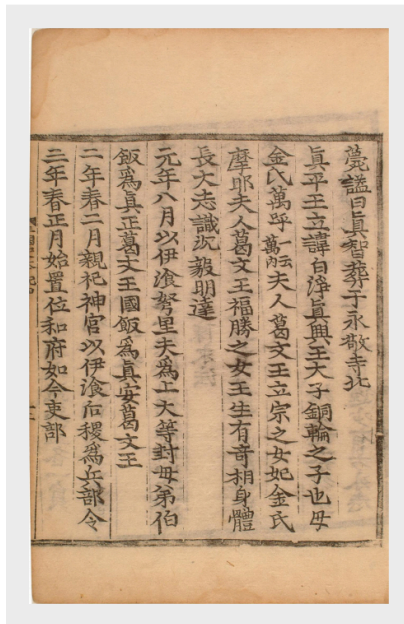 薨諡曰眞智葬于永敬寺北
眞平王立諱白淨眞興王大子銅輪之子也母
金氏萬呼一云萬內夫人葛文王立宗之女妃金氏
摩耶夫人葛文王福勝之女王生有奇相身體
長大志識沉毅明達
元年八月以伊飡弩里夫爲上大等封母弟伯
飯爲真正葛文王國飯爲真安葛文王
二年春二月親祀神宮以伊飡后稷爲兵部令
三年春正月始置位和府如今吏部